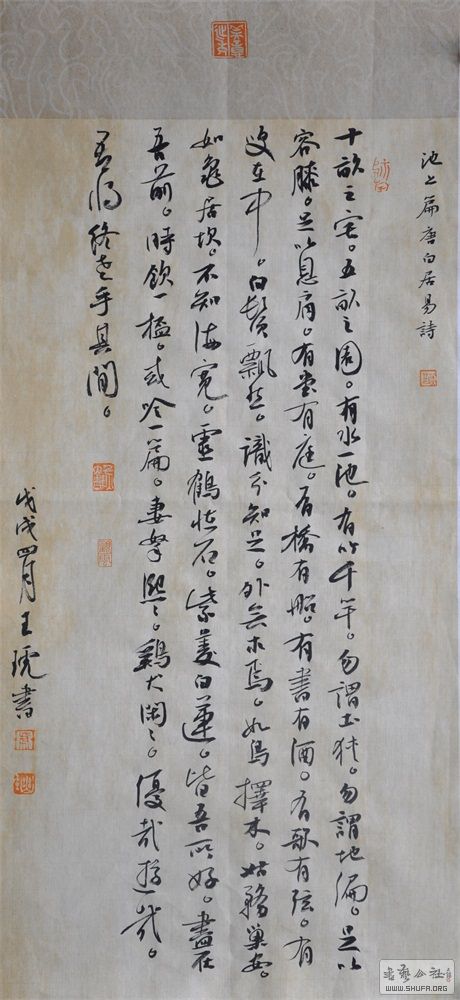 池上篇唐白居易詩
十畝之宅。五畝之園。有水一池。有竹千竿。勿謂土狹。勿謂地偏。足以
容膝。足以息肩。有堂有庭。有橋有船。有書有酒。有歌有弦。有
叟在中。白鬚飄然。識分知足。外無求焉。如鳥擇木。姑務巢安。
如龜居坎。不知海寬。靈鶴怪石。紫菱白蓮。皆吾所好。盡在
吾前。時飲一榼。或吟一篇。妻孥熙々。鷄犬閑々。優哉遊哉。
吾將終老乎其間。
戊戌四月王琥書
書藝公社
WWW.SHUFA.ORG